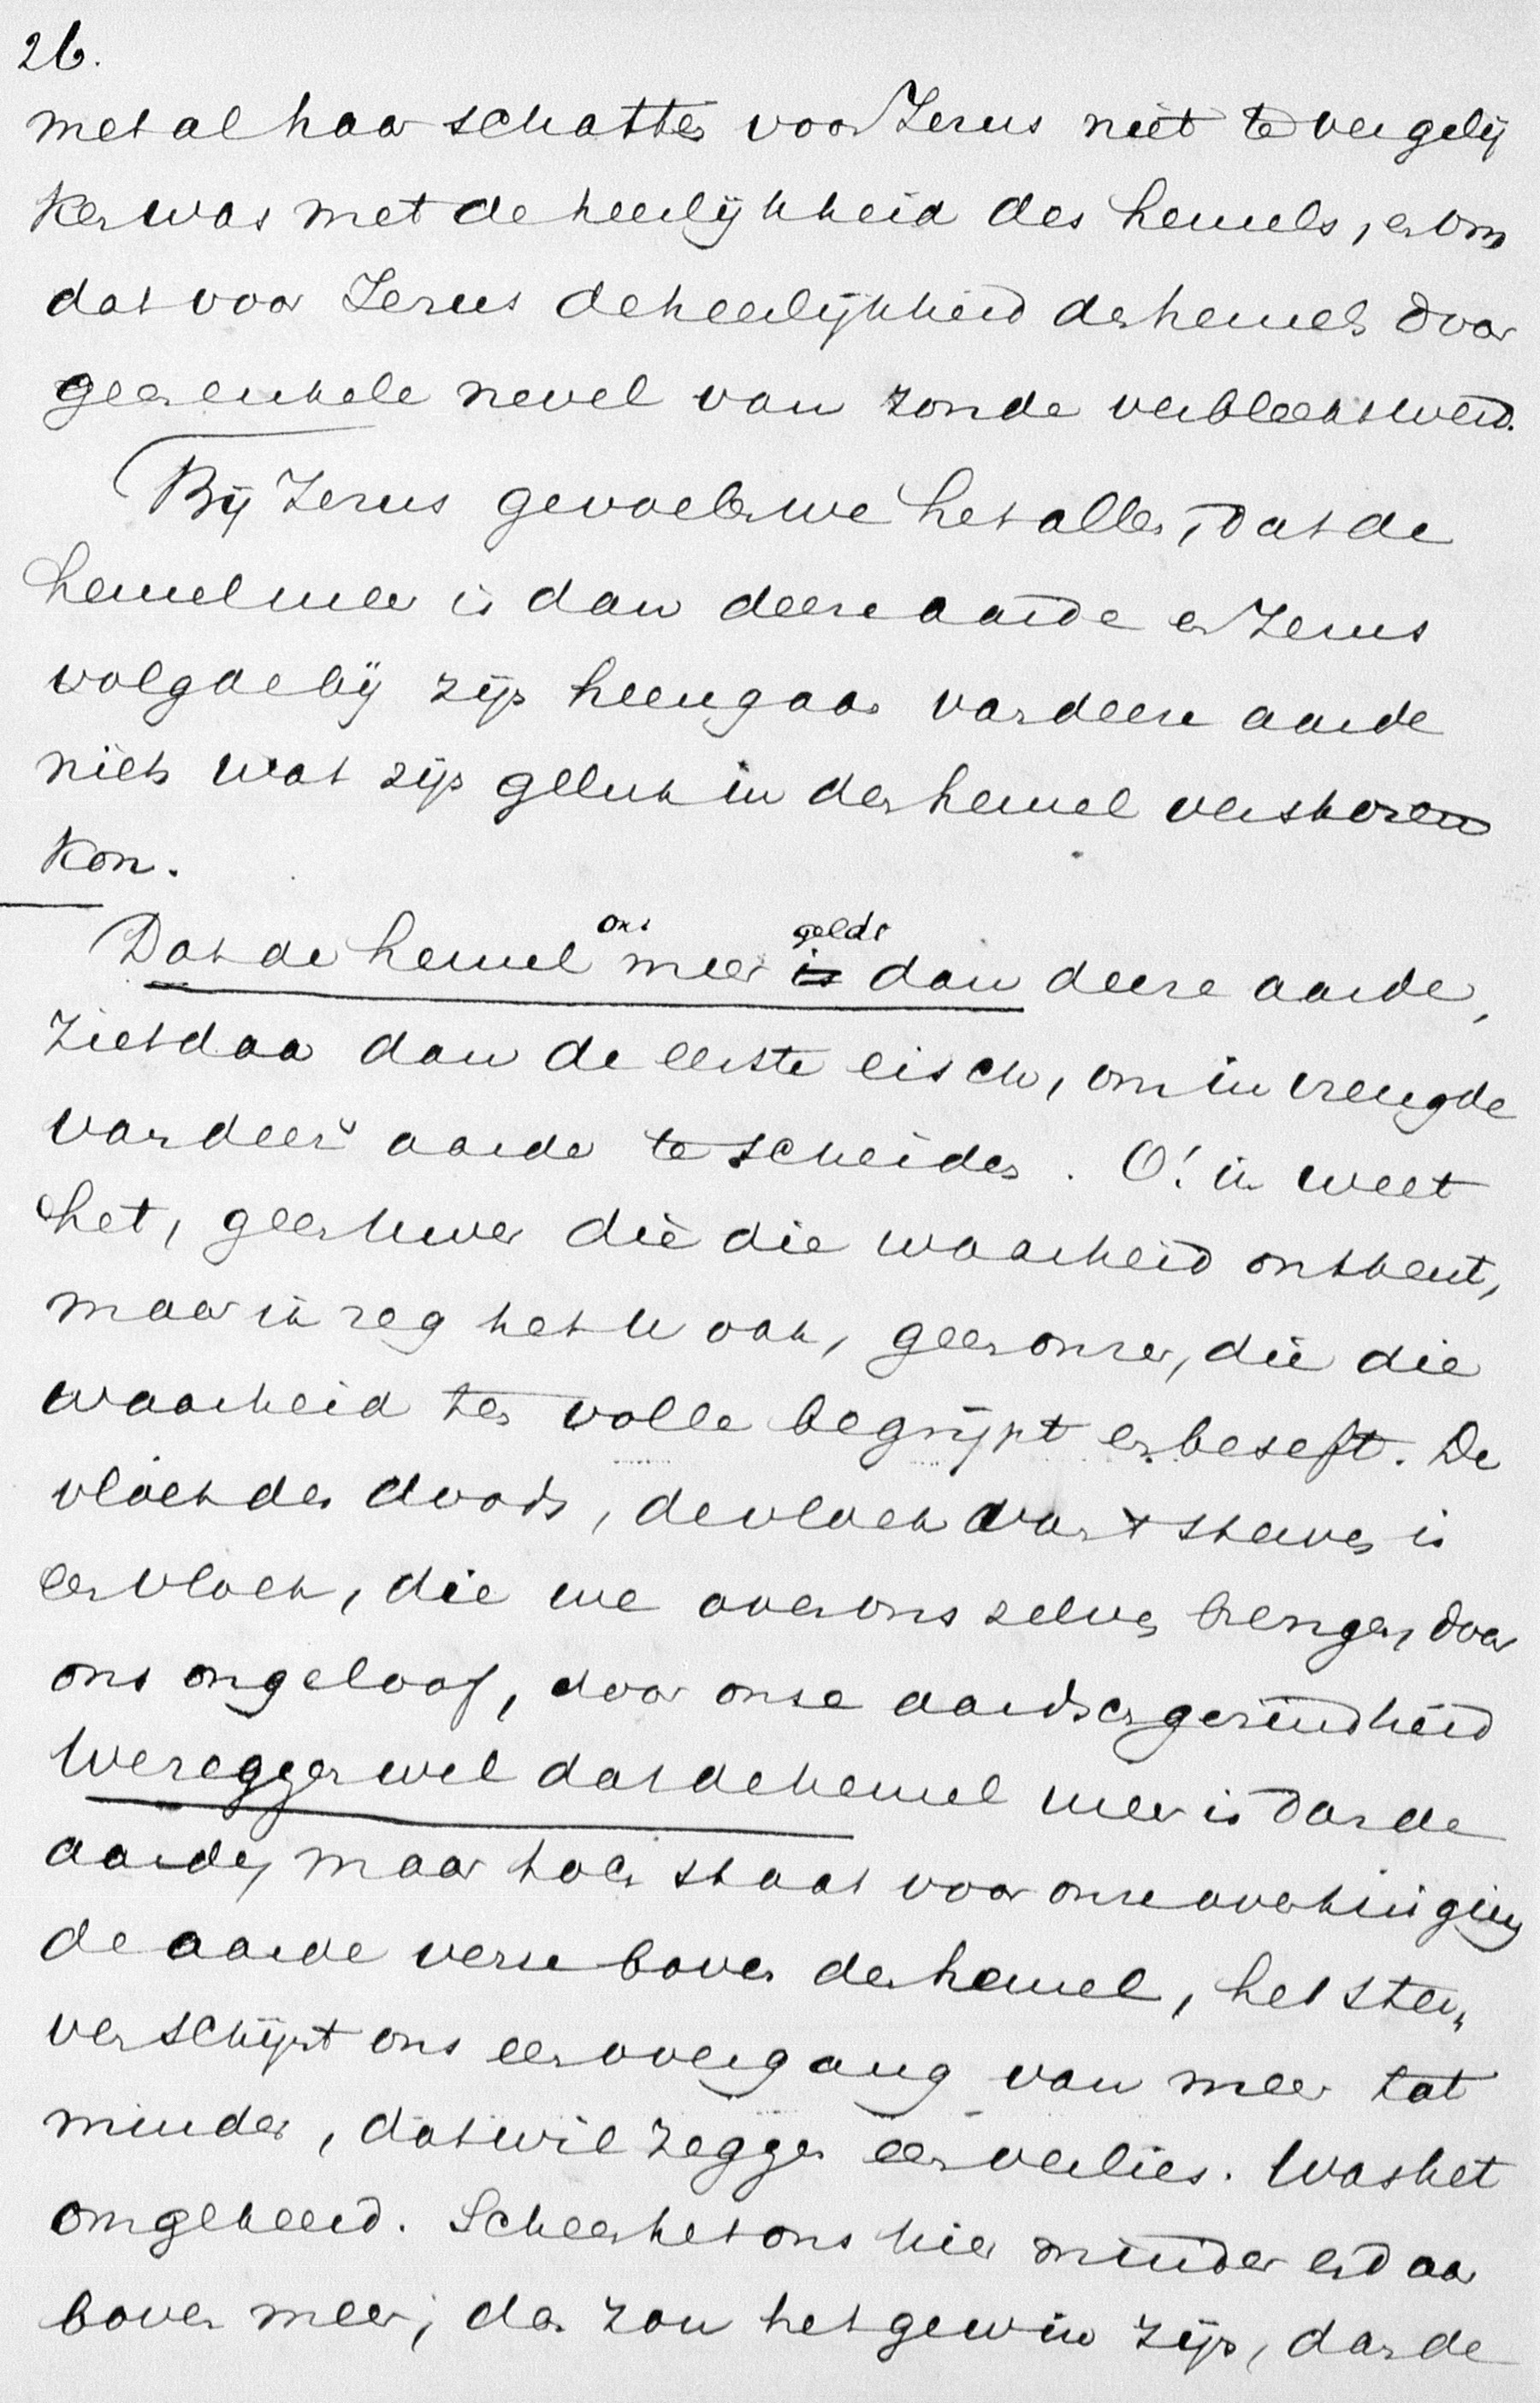 26.
met al haar schatten voor Jezus niet te vergelij
ken was met de heerlijkheid des hemels, en om
dat voor Jezus de heerlijkheid des hemels door
geen enkele nevel van zonde verbleekt werd.
Bij Jezus gevoelen we het allen, dat de
hemel meer is dan deze aarde en Jezus
volgde bij zijn heengaan van deze aarde
niets wat zijn geluk in den hemel verstoren
kon.
Dat de hemel ons meer is geldt dan deze aarde,
Ziet daar dan de eerste eisch, om in vreugde
van deez' aarde te scheiden. O! ik weet
het, geen Uwer die die waarheid ontkent,
maar ik zeg het U ook, geen onzer, die die
waarheid ten volle begrijpt en beseft. De
vloek des doods, de vloek van 't sterven is
een vloek, die we over ons zelven brengen, door
ons ongeloof, door onze aardsgezindheid
We zeggen wel dat de hemel meer is dan de
aarde, maar toch staat voor onze overtuiging
de aarde verre boven den hemel, het ster,
ven schijnt ons een overgang van meer tot
minder, dat wil zeggen een verlies. Was het
omgekeerd. Scheen het ons hier minder en daar
boven meer, dan zou het gewin zijn, dan de